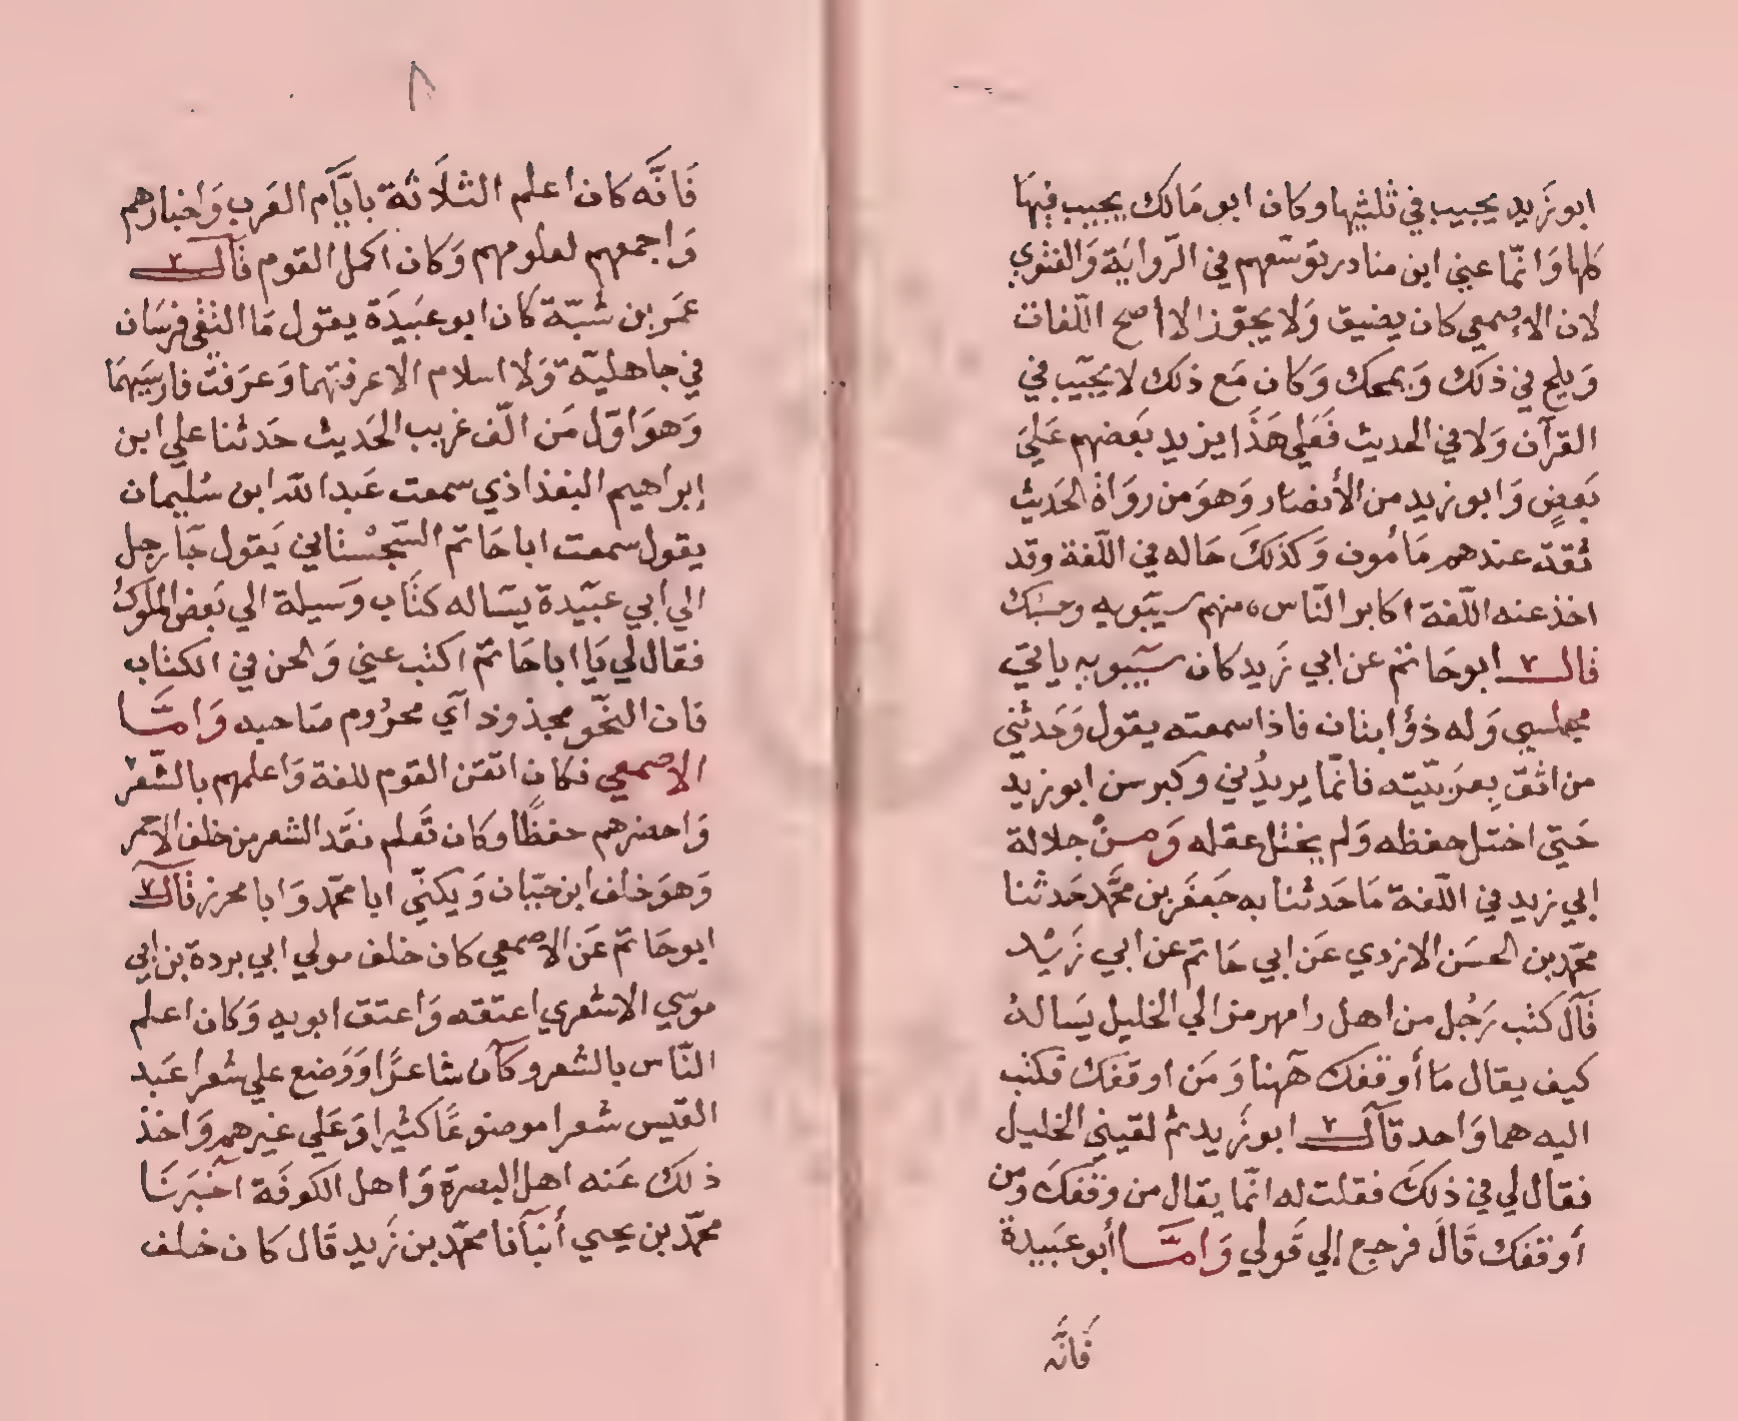 ابو زَيد يجيب في ثلثيها وكان ابو مَالك يجيب فيهَا
كلها وَانّما عني ابن منادر توَسّعهم في الرّوايَة وَالفتوي
لان الاصمعي كان يضيق وَلا يجوّز الا أصح اللّغات
وَيلج في ذلك وَيمحك وَكان مَع ذلك لا يجيّب في
القرآن وَلا في الحديث فَعَلي هَذَا يزيد بَعضهم عَليَ
بَعضٍ وَابو زيد من الأنصَار وَهوَ من روَاة الحَديث
ثقة عندهم مَأمون وَكذلكَ حَاله في اللّغة وقد
اخذ عنه اللّغة اكابر النّاس منهم سيبَويه وحسبك
قال ٢ ابو حَاتم عن ابي زَيد كان سيَبويه ياتيَ
مجلسي وَله ذؤابتان فاذا سمعته يقول وَحَدثني
من اثق بِعرَبيّته فانّما يريدُني وكبر سن ابو زيد
حَتيّ اختل حفظه وَلم يختل عقله وَمنْ جلالة
ابي زيد في اللّغة مَا حَدثنا به جَعفَر بن محَّمد حَدثنا
محّمد بن الحسَن الازدي عَن ابي حَاتم عن ابي زَيْد
قَآل كتب رَجُل من اهل رامهرمز الي الخليل يَسالهُ
كيف يقال مَا أوقفك هَهنا وَمَن اوقفك فكتب
اليه هما وَاحد قاَل ٢ ابو زَيد ثم لقيني الخليل
فقال لي في ذلكَ فقلت له انّما يقال من وقفكَ وَمن
أوقفك قَالَ فرجع الي قَولي وَامَّا أبو عبَيدة
فَانَّه
٨
فَانَّه كان اعلم الثلَاثة بايَّام العَرب وَاخبارهم
وَاجمعهم لعلومهم وَكان اكمل القوم قآل ٢
عمَر بن شبّة كان ابو عبَيدَة يقول مَا التقي فرسَان
في جاهليّة وَلا اسلام الا عرفتهما وَعرَفت فارسَيهمَا
وَهوَ اوّل مَن الّف غريب الحَديث حَدثنا علي ابن
إبراهيم البغذاذي سمعت عَبد الله ابن سُليمان
يقول سمعت ابا حَاتم السّجسْتاني يَقول جَآ رجل
الي أبي عبَيدة يسَاله كتَاب وَسيلة الي بَعض الملوكُ
فقال لي يَا ابا حَاتم اكتب عني وَالحن في الكتاب
فان النّحو مجذوذ آي محرُوم صَاحبه وَامَّا
الاصمعي فكان اتقن القوم للغة وَاعلمهم بالشّعرْ
وَاحضرهم حفظًا وكان تَعلم نقَد الشعر من خلف الاحمر
وَهوَ خلف ابن حيّان وَيكنّي ابا محّمد وَابا محرز قآل ٢
ابو حَاتم عَن الاصمعي كان خلف مولي ابي بردة بن ابي
موسي الاشعري اعتقه وَاعتق ابويه وَكان اعلم
النّاس بالشعر وكَان شاعرًا وَوَضع علي شعرا عَبد
القيس شعرا موضوعًا كثيرا وَعَلي غيرهم وَاخذ
ذلك عَنه اهل البصرة وَاهل الكوفَة اَخبَرنَا
محّمد بن يحيي أنبَآنا محّمد بن زَيد قَال كان خلف